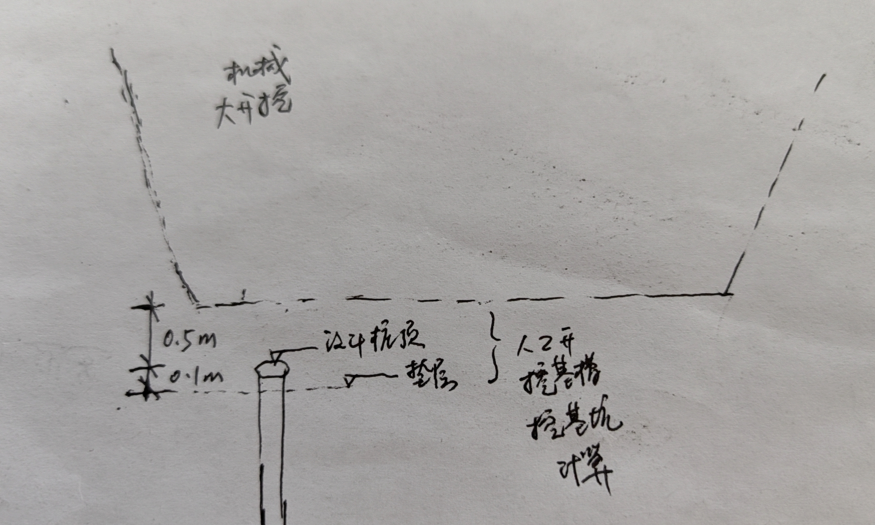 机械
大开挖
0.5m
设计桩顶
0.1m
垫层
人工开
挖基槽
挖基坑
计算